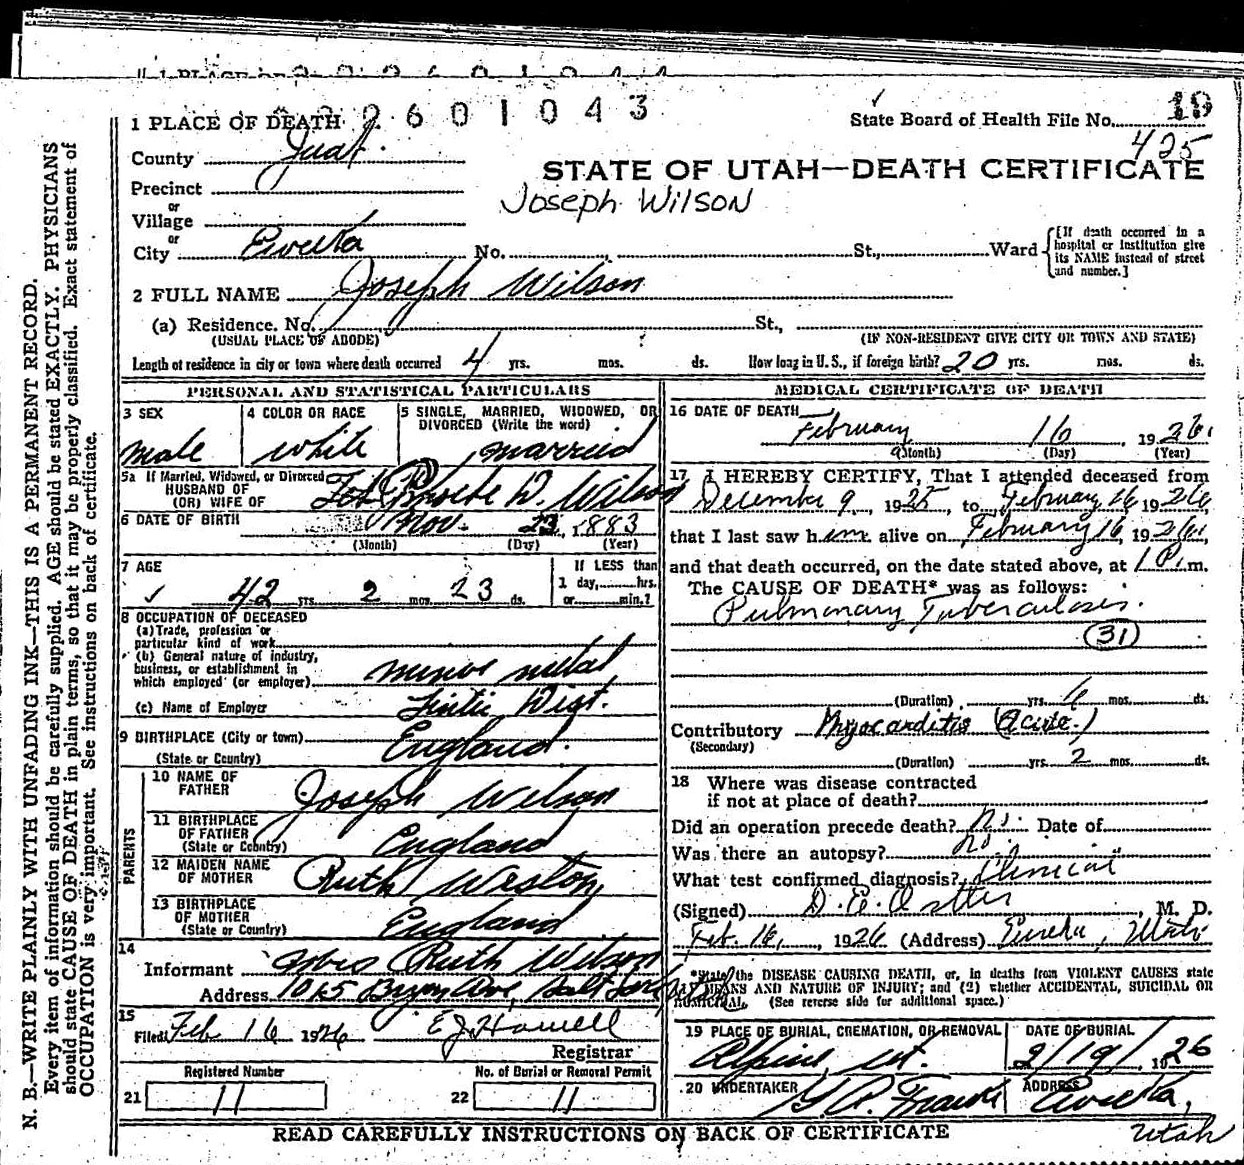 2601043
19
1 PLACE OF DEATH
State Board of Health File No.
425
County Juab.
STATE OF UTAH—DEATH CERTIFICATE
Precinct
Joseph Wilson
or
Village
or
City Eureka No. St., Ward
[If death occurred in a hospital or institution give its NAME instead of street and number.]
2 FULL NAME Joseph Wilson
(a) Residence. No. St.,
(USUAL PLACE OF ABODE) (IF NON-RESIDENT GIVE CITY OR TOWN AND STATE)
Length of residence in city or town where death occurred 4 yrs. mos. ds. How long in U.S., if foreign birth? 20 yrs. mos. ds.
PERSONAL AND STATISTICAL PARTICULARS
3 SEX
male
4 COLOR OR RACE
white
5 SINGLE, MARRIED, WIDOWED, OR DIVORCED (Write the word)
married
5a If Married, Widowed, or Divorced
HUSBAND OF
(OR) WIFE OF Phoebe W. Wilson
6 DATE OF BIRTH Nov. 23, 1883
(Month) (Day) (Year)
7 AGE
42 yrs. 2 mos. 23 ds.
If LESS than
1 day, hrs.
or min.?
8 OCCUPATION OF DECEASED
(a) Trade, profession or
particular kind of work
(b) General nature of industry,
business, or establishment in
which employed (or employer) miner metal
(c) Name of Employer Tintic Dist.
9 BIRTHPLACE (City or town) England.
(State or Country)
PARENTS
10 NAME OF
FATHER Joseph Wilson
11 BIRTHPLACE
OF FATHER
(State or Country) England
12 MAIDEN NAME
OF MOTHER Ruth Weston
13 BIRTHPLACE
OF MOTHER
(State or Country) England
14
Informant Mrs Ruth Wilson
Address Ave, Salt Lake
15
Filed Feb 16 1926 E J Howell
Registrar
Registered Number
21 11
No. of Burial or Removal Permit
22 11
MEDICAL CERTIFICATE OF DEATH
16 DATE OF DEATH
February 16, 1926.
(Month) (Day) (Year)
17 I HEREBY CERTIFY, That I attended deceased from
December 9, 1925, to February 16 1926
that I last saw him alive on February 16, 1926,
and that death occurred, on the date stated above, at 1 P.m.
The CAUSE OF DEATH* was as follows:
Pulmonary Tuberculosis.
31
(Duration) yrs. 6 mos. ds.
Contributory Myocarditis (Acute.)
(Secondary)
(Duration) yrs. 2 mos. ds.
18 Where was disease contracted
if not at place of death?
Did an operation precede death? No. Date of
Was there an autopsy? No.
What test confirmed diagnosis? Clinical
(Signed) M. D.
Feb. 16, 1926 (Address) Eureka, Utah
*State the DISEASE CAUSING DEATH, or, in deaths from VIOLENT CAUSES state
MEANS AND NATURE OF INJURY; and (2) whether ACCIDENTAL, SUICIDAL OR
HOMICIDAL. (See reverse side for additional space.)
19 PLACE OF BURIAL, CREMATION, OR REMOVAL
Alpine, Ut.
DATE OF BURIAL
2/19/ 1926
20 UNDERTAKER
ADDRESS
Eureka,
Utah
READ CAREFULLY INSTRUCTIONS ON BACK OF CERTIFICATE
N. B.—WRITE PLAINLY WITH UNFADING INK—THIS IS A PERMANENT RECORD.
Every item of information should be carefully supplied. AGE should be stated EXACTLY. PHYSICIANS
should state CAUSE OF DEATH in plain terms, so that it may be properly classified. Exact statement of
OCCUPATION is very important. See instructions on back of certificate.